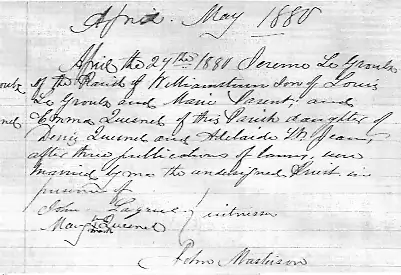 April. May 1880
April the 29th 1880 Jeremo Le Groulx
of the Parish of Williamstown Son of Louis
Le Groulx and Marie Parent, and
Emma Quesnel of this Parish daughter of
Denis Quesnel and Adelaide St. Jean,
after three publications of banns, were
married by me the undersigned Priest in
presence of
John Lagrue witnesses
Mary Quesnel
John Masterson